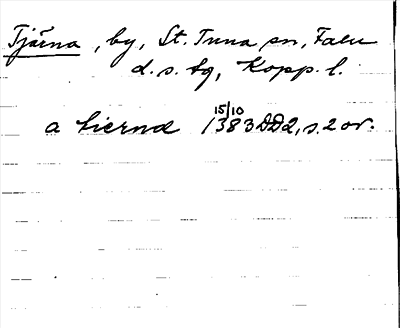 Tjärna, by, St. Tuna sn, Falu
d. s. tg, Kopp. l.
a tiernæ 15/10 1383 DD2, s. 2 or.